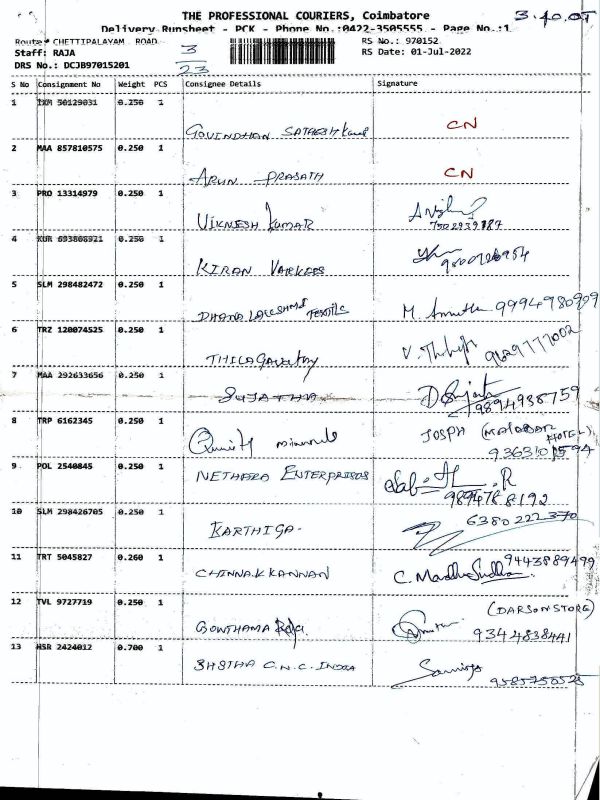 THE PROFESSIONAL COURIERS, Coimbatore
3.40.0T
Delivery Runsheet - PCK - Phone No.:0422-3505555 - Page No.:1
Route# CHETTIPALAYAM ROAD
3
23
RS No.: 970152
Staff: RAJA
RS Date: 01-Jul-2022
DRS No.: DCJB97015201
S No Consignment No Weight PCS Consignee Details Signature
1 50129031 0.250 1
GOVINDHAN CN
2 MAA 857810575 0.250 1
ARUN PRASATH CN
3 PRO 13314979 0.250 1
VIKNESH KUMAR 7502939787
4 KUR 693868921 0.250 1
KIRAN
5 SLM 298482472 0.250 1
DHANA LAKSHMI TEXTILE M. 9994980909
6 TRZ 120074525 0.250 1
V. 9629777002
7 MAA 292633656 0.250 1
SUJATHA D Sujata
9894938759
8 TRP 6162345 0.250 1
minerals JOSPH (MALABAR HOTEL)
9 POL 2540845 0.250 1
NETHARA ENTERPRISES
9894788192
10 SLM 298426705 0.250 1
KARTHIGA- 6380222370
11 TRT 5045827 0.260 1
CHINNAKKANNAN C. Madhu Sudha. 9443889499
12 TVL 9727719 0.250 1
GOWTHAMA Raja. (DARSON STORE)
9344838441
13 HSR 2424012 0.700 1
C.N.C. INDIA
9585750525